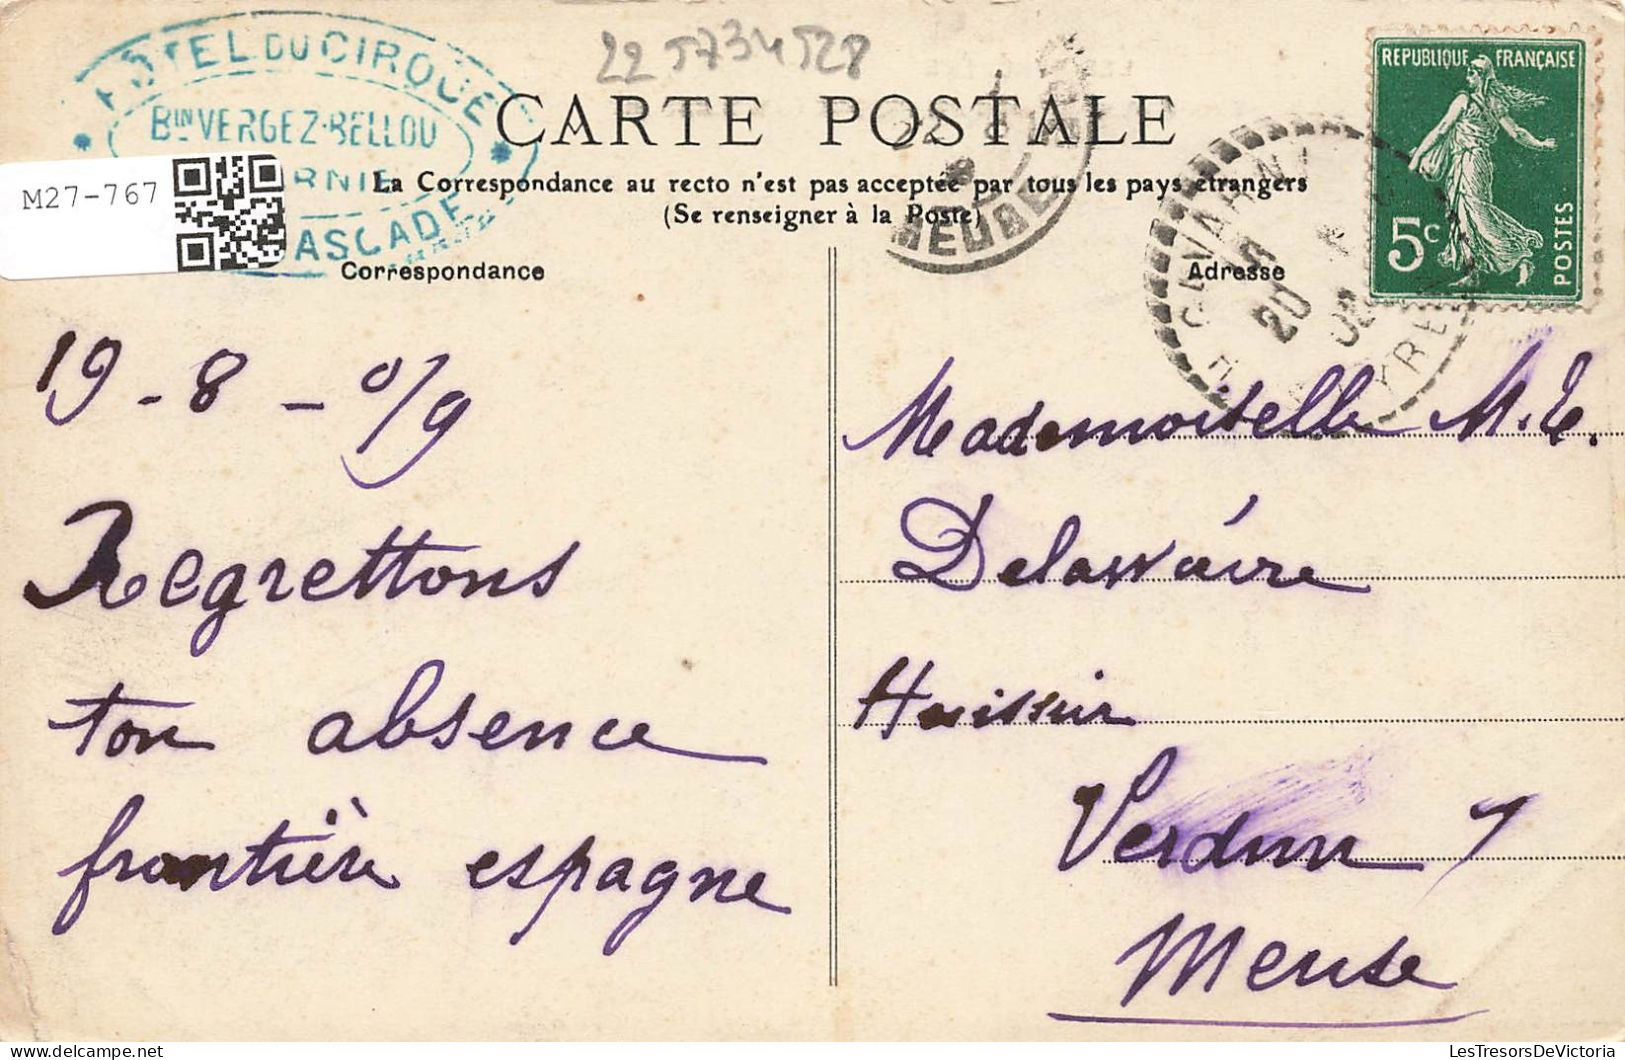 HÔTEL DU CIRQUE
BIN VERGEZ-BELLOU
ASCADE
M27-767
22 5734528
CARTE POSTALE
La Correspondance au recto n'est pas acceptée par tous les pays étrangers
(Se renseigner à la Poste)
Correspondance
Adresse
REPUBLIQUE FRANÇAISE
5c
POSTES
20
MEUSE
19-8-0/9
Regrettons
ton absence
frontière espagne
Mademoiselle M.E.
Huissier
Verdun
Meuse
LesTresorsDeVictoria